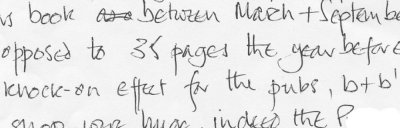 book between March + Septembe
opposed to 35 pages the year before
knock-on effect for the pubs, b+b'
your huge, indeed the P